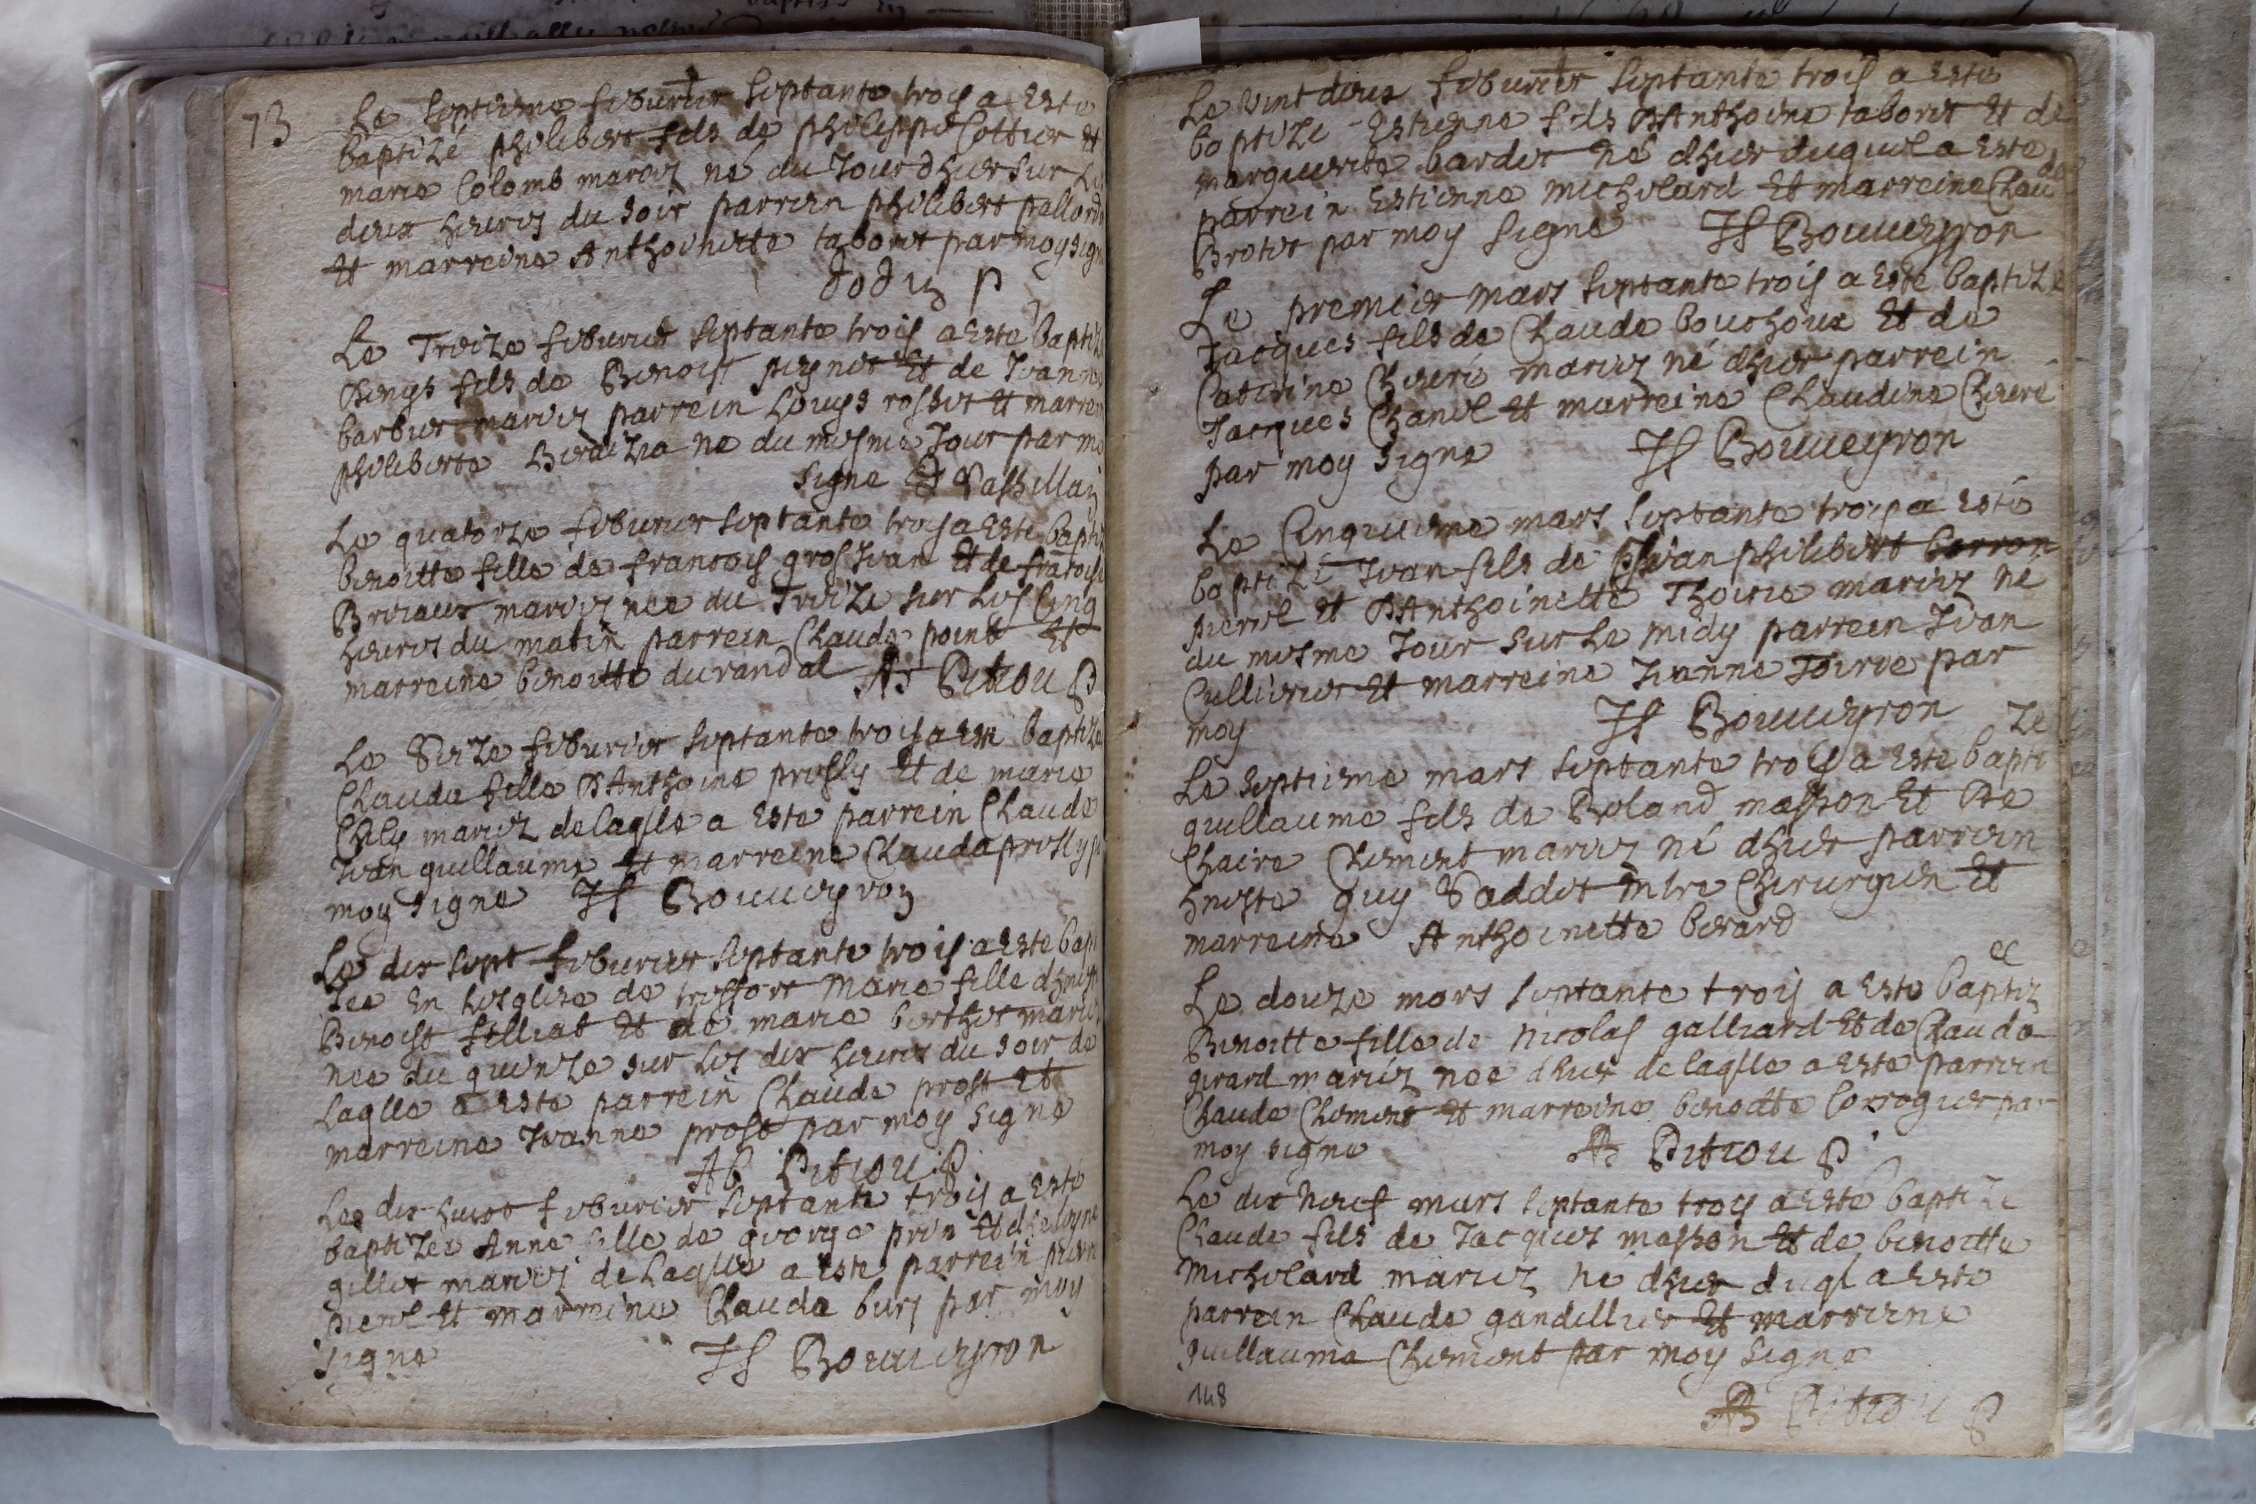 73
Le septiesme feburier septante troys a este
baptizé philibert fils de philippe Cottier et
marie Colomb mariez né du Jour dhier sur les
deux heures du soir parrien philibert pallord
et marreine Anthoinette taboret par moy sign
doduz p
Le Treize feburier septante trois a este baptiz
Denys fils de Benoist peysnet Et de Jeanne
barbier mariez parrein Louys rosset et marrei
philiberte ne du mesme Jour par mo
signe Vassillaz
Le quatorze feburier septante trois a este bapti
benoitte fille de francois grosJean Et de francoise
mariez nee du treize sur les Cinq
heures du matin parrein Claude point Et
marreine benoitte durandal AB Pitiou P
Le Seize feburier septante trois a este baptize
Clauda fille D'Anthoine prosty Et de marie
Chely mariez de laqlle a este parrein Claude
Jean guillaume Et marreine Clauda prosty p
moy signe JS Bouveyron
Le dix sept feburier septante trois a este bapt
zee En lesglise de tressort Marie fille dhneste
Benoist filliat Et de marie berthet mariez
nee du quinze sur les dix heures du soir de
laqlle a este parrein Claude prost Et
marreine Jeanne prost par moy signe
AB Pitiou P
Lee dix huict feburier septante trois a este
baptizee Anne fille de george prin Et dheleyne
gillet mariez de laqlle a este parrein pierre
pierrel Et marreine Clauda burs par moy
signe JS Bouveyron
Le vint deux feburier septante trois a este
baptize Estienne fils D'Anthoine taboret Et de
marguerite bardet né dhier duquel a este
parrein Estienne michelard Et marreine Clau
da
Brotet par moy signe JS Bouveyron
Le premier mars septante trois a este baptize
Jacques fils de Claude bouchoux Et de
Caterine Cheuré mariez né dhier parrein
Jacques Chanel Et marreine Claudine Cheuré
par moy signe JS Bouveyron
Le Cinquiesme mars septante trois a esté
baptizé Jean fils de Jean philibert barron
pierrel Et D'Anthoinette Thoirie mariez né
du mesme Jour sur le midy parrein Jean
Cullieret Et marreine Jeanne Toirie par
moy JS Bouveyron
ze
Le septiesme mars septante trois a este bapti
guillaume fils de Roland masson Et De
Claire Clement mariez né dhier parrein
hneste guy Saddet mtre Chirurgien Et
marreine Anthoinette berard
ee
Le douze mars septante troys a este baptiz
Benoitte fille de nicolas galliard Et de Claude
girard mariez nee dhier de laqlle a este parrein
Claude Clement Et marreine benoitte Corrogier par
moy signe AB Pitiou P
Le dix neuf mars septante troys a esté baptize
Claude fils de Jacques masson Et de benoitte
Michelard mariez né dhier duql a este
parrein Claude gandillier Et marreine
guillauma Clement par moy signe
148
AB Pitiou P